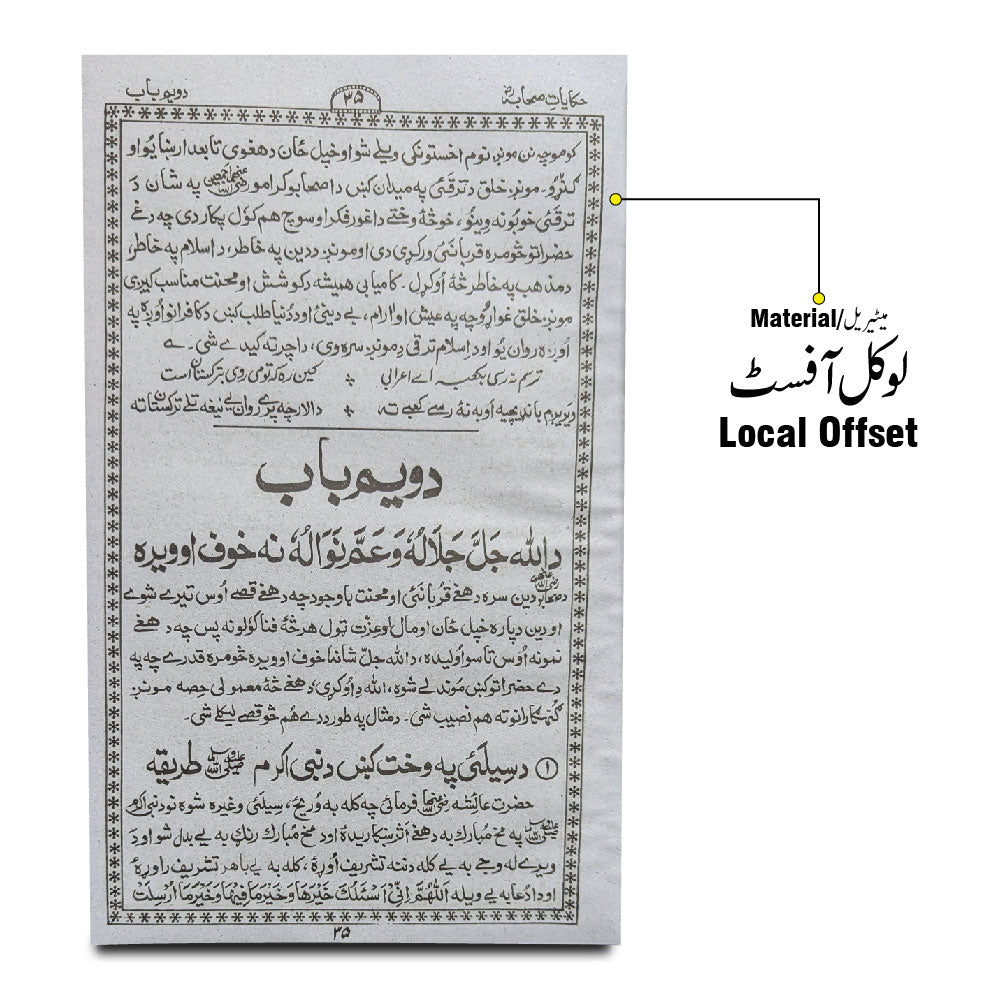 حکایاتِ صحابہؓ
۳۵
دویم باب
کومو چہ نن مونږ نوم اخستونکی ویلے شو او خپل ځان دهغوی تابعدار ښایو او
ګڼړو۔ مونږ خلق د ترقئ په میدان کښ د اصحابو کرامو رضی الله عنهم اجمعین په شان دَ
ترقئ خوبونه وینو، خوڅهٔ وختے داغور فکر او سوچ هم کوَل پکار دی چه دغے
حضراتو څومره قربانئ ورکړی دی او مونږ ددین په خاطر، د اسلام په خاطر،
د مذهب په خاطر څهٔ اُوکړل۔ کامیابی همیشه د کوشش او محنت مناسب کیږی
مونږ خلق غواړو چه په عیش او آرام، بے دینئ او د دُنیا طلب کښ د کافرانو اوږه په
اُوږه روان یو او د اسلام ترقی دِ مونږ سره وی، دا چرته کیدے شی۔ ے
ترسم نه رسی بکعبہ اے اعرابی ٭ کیں رہ کہ تو می روی بترکستان است
ویریږم باندیچیه اوبه نهٔ رسے کعبے ته ٭ دا لار چه پرے روان یے نیغه تلے ترکستان ته
دویم باب
د الله جَلَّ جَلَالُهٗ وَعَمَّ نَوَالُهٗ نه خوف او ویره
د صحابو رضی الله عنهم دین سره دهغے قربانئ او محنت باوجود چه دهغے قصے اُوس تیرے شوے
او دین دپاره خپل ځان او مال او عزت ټول هرڅهٔ فنا کوَلو نه پس چه دهغے
نمونه اُوس تاسو اولیده، د الله جلّ شانہ خوف او ویره څومره قدرے چه په
دے حضراتو کښ موندلے شوه، الله دِ اُوکړی، دهغے څهٔ معمولی حِصه مونږ
ګنهګارانو ته هم نصیب شی۔ د مثال په طور دے هُم څو قصے لیکلے شی۔
① د سیلئ په وخت کښ د نبی اکرم صلی الله علیه وسلم طریقه
حضرت عائشه رضی الله عنها فرمائی چه کله به وُریځ، سیلئ وغیره شوه نو د نبی اکرم
صلی الله علیه وسلم په مخ مُبارک به دهغے اثر ښکاریدهٔ او د مخ مُبارک رنګ به یے بدل شو او دَ
ویرے له وجے به یے کله دننه تشریف اُوړهٔ، کله به یے باهر تشریف راوړهٔ
او دا دُعا به یے ویله اَللّٰهُمَّ اِنِّیْ اَسْئَلُكَ خَيْرَهَا وَخَيْرَ مَا فِيْهَا وَخَيْرَ مَا اُرْسِلَتْ
۳۵
Material/میٹیریل
لوکل آفسٹ
Local Offset